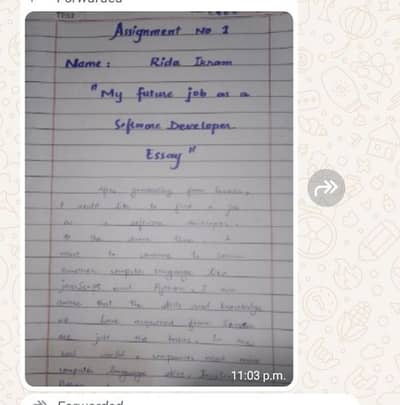 Forwarded
Assignment No 1
Name: Rida Ikram
"My future job as a
Software Developer
Essay"
After graduating from
I would like to find a job
as a software developer.
At the same time, I
want to continue to
another computer language like
javaScript and Python. I am
aware that the skills and knowledge
we have acquired from
are just the basics. In the
real world, companies need more
computer language
11:03 p.m.
Forwarded